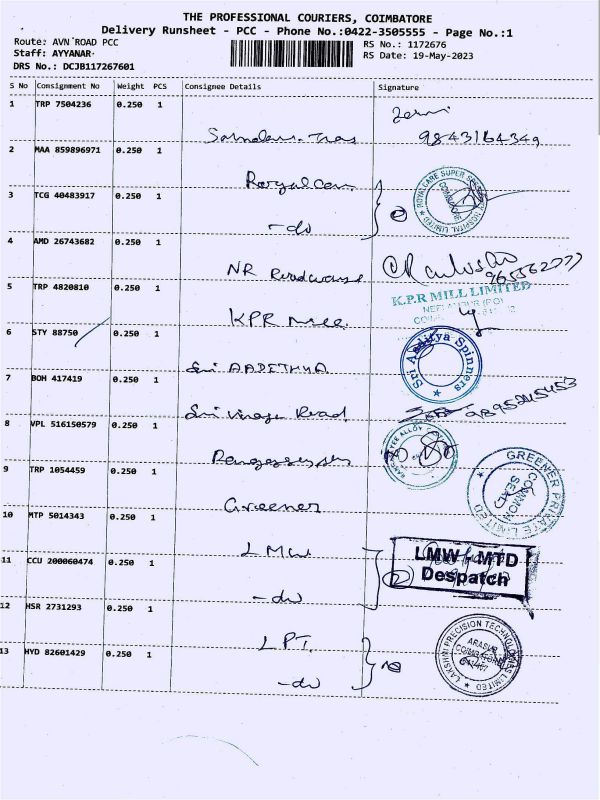 THE PROFESSIONAL COURIERS, COIMBATORE
Delivery Runsheet - PCC - Phone No.:0422-3505555 - Page No.:1
Route: AVN ROAD PCC
RS No.: 1172676
Staff: AYYANAR
RS Date: 19-May-2023
DRS No.: DCJB117267601
S No Consignment No Weight PCS Consignee Details Signature
1 TRP 7504236 0.250 1
9843164349
2 MAA 859896971 0.250 1
Royal Care
ROYALCARE SUPER SPECIALITY HOSPITAL LIMITED
COIMBATORE
3 TCG 40483917 0.250 1
-do
4 AMD 26743682 0.250 1
NR Roadways
5 TRP 4820810 0.250 1
K.P.R MILL LIMITED
KPR Mill
6 STY 88750 0.250 1
Sri AADITHYA
Sri Aaditya Spinners
7 BOH 417419 0.250 1
Sri Vinaga Road
9895245453
8 VPL 516150579 0.250 1
9 TRP 1054459 0.250 1
Greener
GREENER PRIVATE LIMITED
COMMON SEAL
10 MTP 5014343 0.250 1
LMW
LMW - MTD
Despatch
11 CCU 200060474 0.250 1
-do
12 HSR 2731293 0.250 1
LPT
LAKSHMI PRECISION TECHNOLOGIES LIMITED
ARASUR
COIMBATORE
641407
13 HYD 82601429 0.250 1
-do